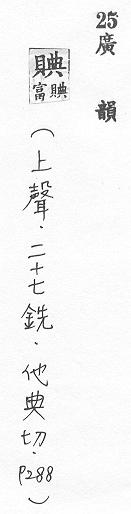 25廣韻
賟
富賟
(上聲.二十七銑.他典切.P288)